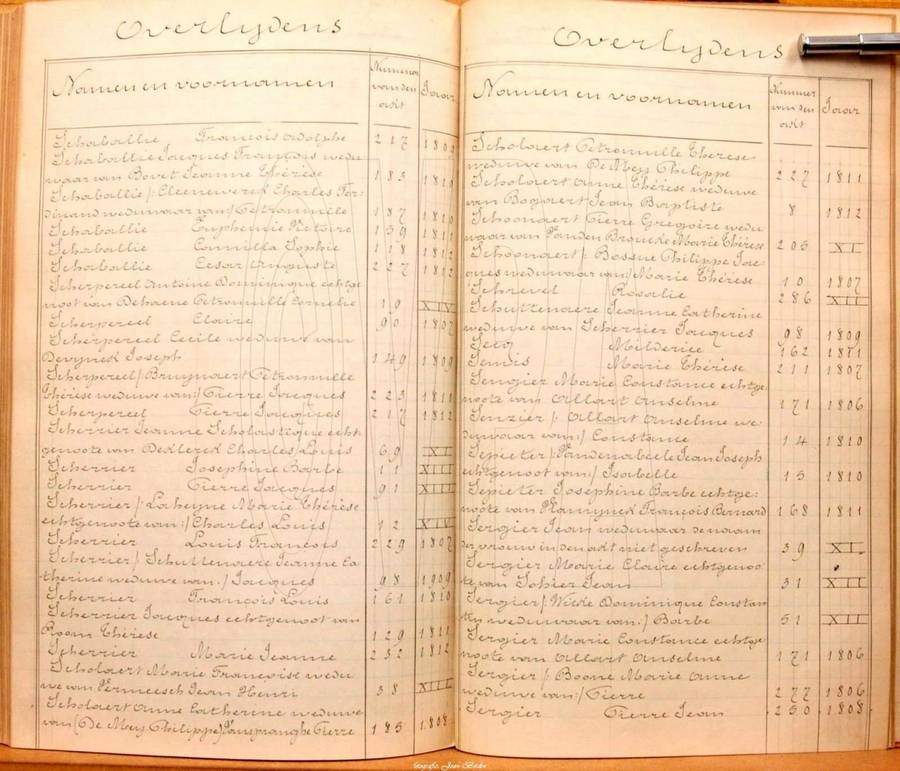 Overlydens
Namen en voornamen Nummer van den akt Jaar
Schaballie François Adolphe 217 1802
Schaballie Jacques François wedu
waar van Bovet Jeanne Thérèse 183 1810
Schaballie /: Eleenewerck Charles Fer-
dinand weduwaar van:/ Petronnille 187 1810
Schaballie Euphemie Victoire 159 1811
Schaballie Camilla Sophie 118 1812
Schaballie Cesar Auguste 227 1812
Scherpereel Antoine Dominique echtge
noot van Dehaene Petronnille Cornelie 19 XIV
Scherpereel Claire 90 1807
Scherpereel Cecile weduwe van
Devynck Joseph 149 1809
Scherpereel /: Bruynaert Petronnille
Thérèse weduwe van:/ Pierre Jacques 223 1811
Scherpereel Pierre Jacques 217 1812
Scherrier Jeanne Scholastique echt-
genoote van Deklerck Charles Louis 69 XI
Scherrier Josephine Barbe 11 XIII
Scherrier Pierre Jacques 91 XIII
Scherrier /: Laheyne Marie Thérèse
echtgenoote van:/ Charles Louis 12 XIV
Scherrier Louis François 229 1807
Scherrier /: Schuttenaere Jeanne Ca
therine weduwe van:/ Jacques 98 1909
Scherrier François Louis 161 1810
Scherrier Jacques echtgenoot van
Room Thérèse 129 1811
Scherrier Marie Jeanne 232 1812
Scholaert Marie Françoise wedu
we van Vermeesch Jean Henri 38 XIII
Scholaert Anne Catherine weduwe
van (De Mey Philippe) Vanpranghe Pierre 185 1808
Overlydens
Namen en voornamen Nummer van den akt Jaar
Scholaert Petronnille Therese
weduwe van De Mey Philippe 227 1811
Scholaert Anne Thérèse weduwe
van Bogaert Jean Baptiste 8 1812
Schoonaert Pierre Gregoire wedu
waar van Vanden Broucke Marie Thérèse 205 XI
Schoonaert /: Bossue Philippe Jac
ques weduwaar van:/ Marie Thérèse 10 1807
Schrevel Rosalie 286 XII
Schuttenaere Jeanne Catherine
weduwe van Scherrier Jacques 98 1809
Secq Milderice 162 1811
Semis Marie Thérèse 211 1807
Sengier Marie Constance echtge
noote van Allart Anselme 171 1806
Senzier /: Allart Anselme we-
duwaar van:/ Constance 14 1810
Sepieter /: Vandenabeele Jean Joseph
echtgenoot van:/ Isabelle 15 1810
Sepieter Josephine Barbe echtge-
noote van Plamynck François Bernard 168 1811
Sergier Jean weduwaar de naam
der vrouw in den akt niet geschreven 39 XI
Sergier Marie Claire echtgenoo
te van Sohier Jean 31 XII
Sergier /: Wicke Dominique Constan
tin weduwaar van:/ Barbe 51 XII
Sergier Marie Constance echtge
noote van Allart Anselme 171 1806
Sergier /: Boone Marie Anne
weduwe van:/ Pierre 277 1806
Sergier Pierre Jean 250 1808